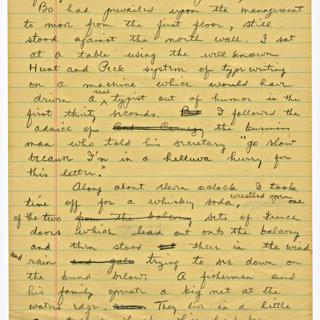 Bo had prevailed upon the management
to move from the first floor, still
stood against the north wall. I sat
at a table using the well known
Hunt and Peck system of typewriting
on a machine which would have
driven a real typist out of humor in the
first thirty seconds. But I followed the
advice of the business
man who told his secretary "go slow
because I'm in a helluva hurry for
this letter."
Along about eleven oclock I took
time off for a whiskey soda, wrestled open one
of the two from the balcony sets of French
doors which lead out onto the balcony
and then stood out there in the wind
and rain and gale trying to see down on
the bund below. A fisherman and
his family operate a big net at the
waters edge. They live in a little